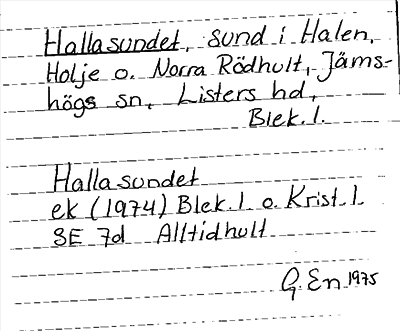 Hallasundet, sund i Halen,
Holje o. Norra Rödhult, Jäms-
högs sn, Listers hd,
Blek. l.
Hallasundet
ek (1974) Blek. l o. Krist. l
3E 7d Alltidhult
G. En 1975